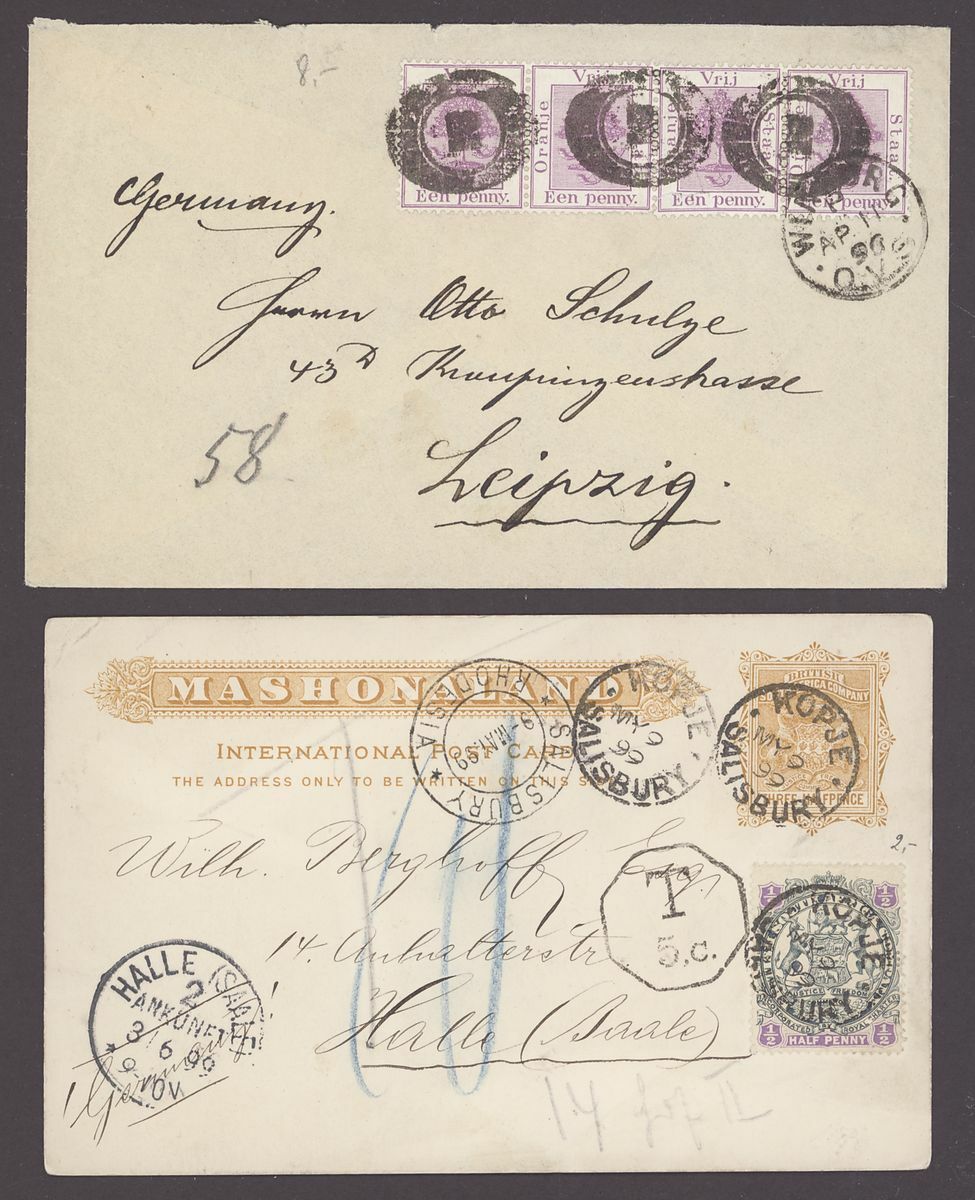 8,-
Vrij Vrij Vrij
Oranje Staat
Een penny. Een penny. Een penny. Een penny.
AP 11
96
O.V.S
Germany.
Herrn Otto Schulze
43D
Leipzig.
58
MASHONALAND
INTERNATIONAL POST CARD
THE ADDRESS ONLY TO BE WRITTEN ON THIS SIDE
BRITISH SOUTH AFRICA COMPANY
THREE HALFPENCE
SALISBURY
9-MAY.99
RHODESIA
KOPJE
MY 9
99
SALISBURY
KOPJE
MY 9
99
SALISBURY
2,-
Wilh. Berghoff Esq,
14. Anhalterstr
Halle (Saale)
Germany
10
T
5.c.
KOPJE
SALISBURY
1/2 1/2
JUSTICE FREEDOM
1/2 HALF PENNY 1/2
HALLE (SAALE)
2
ANKUNFT
3 6 99
9- 10V.
14